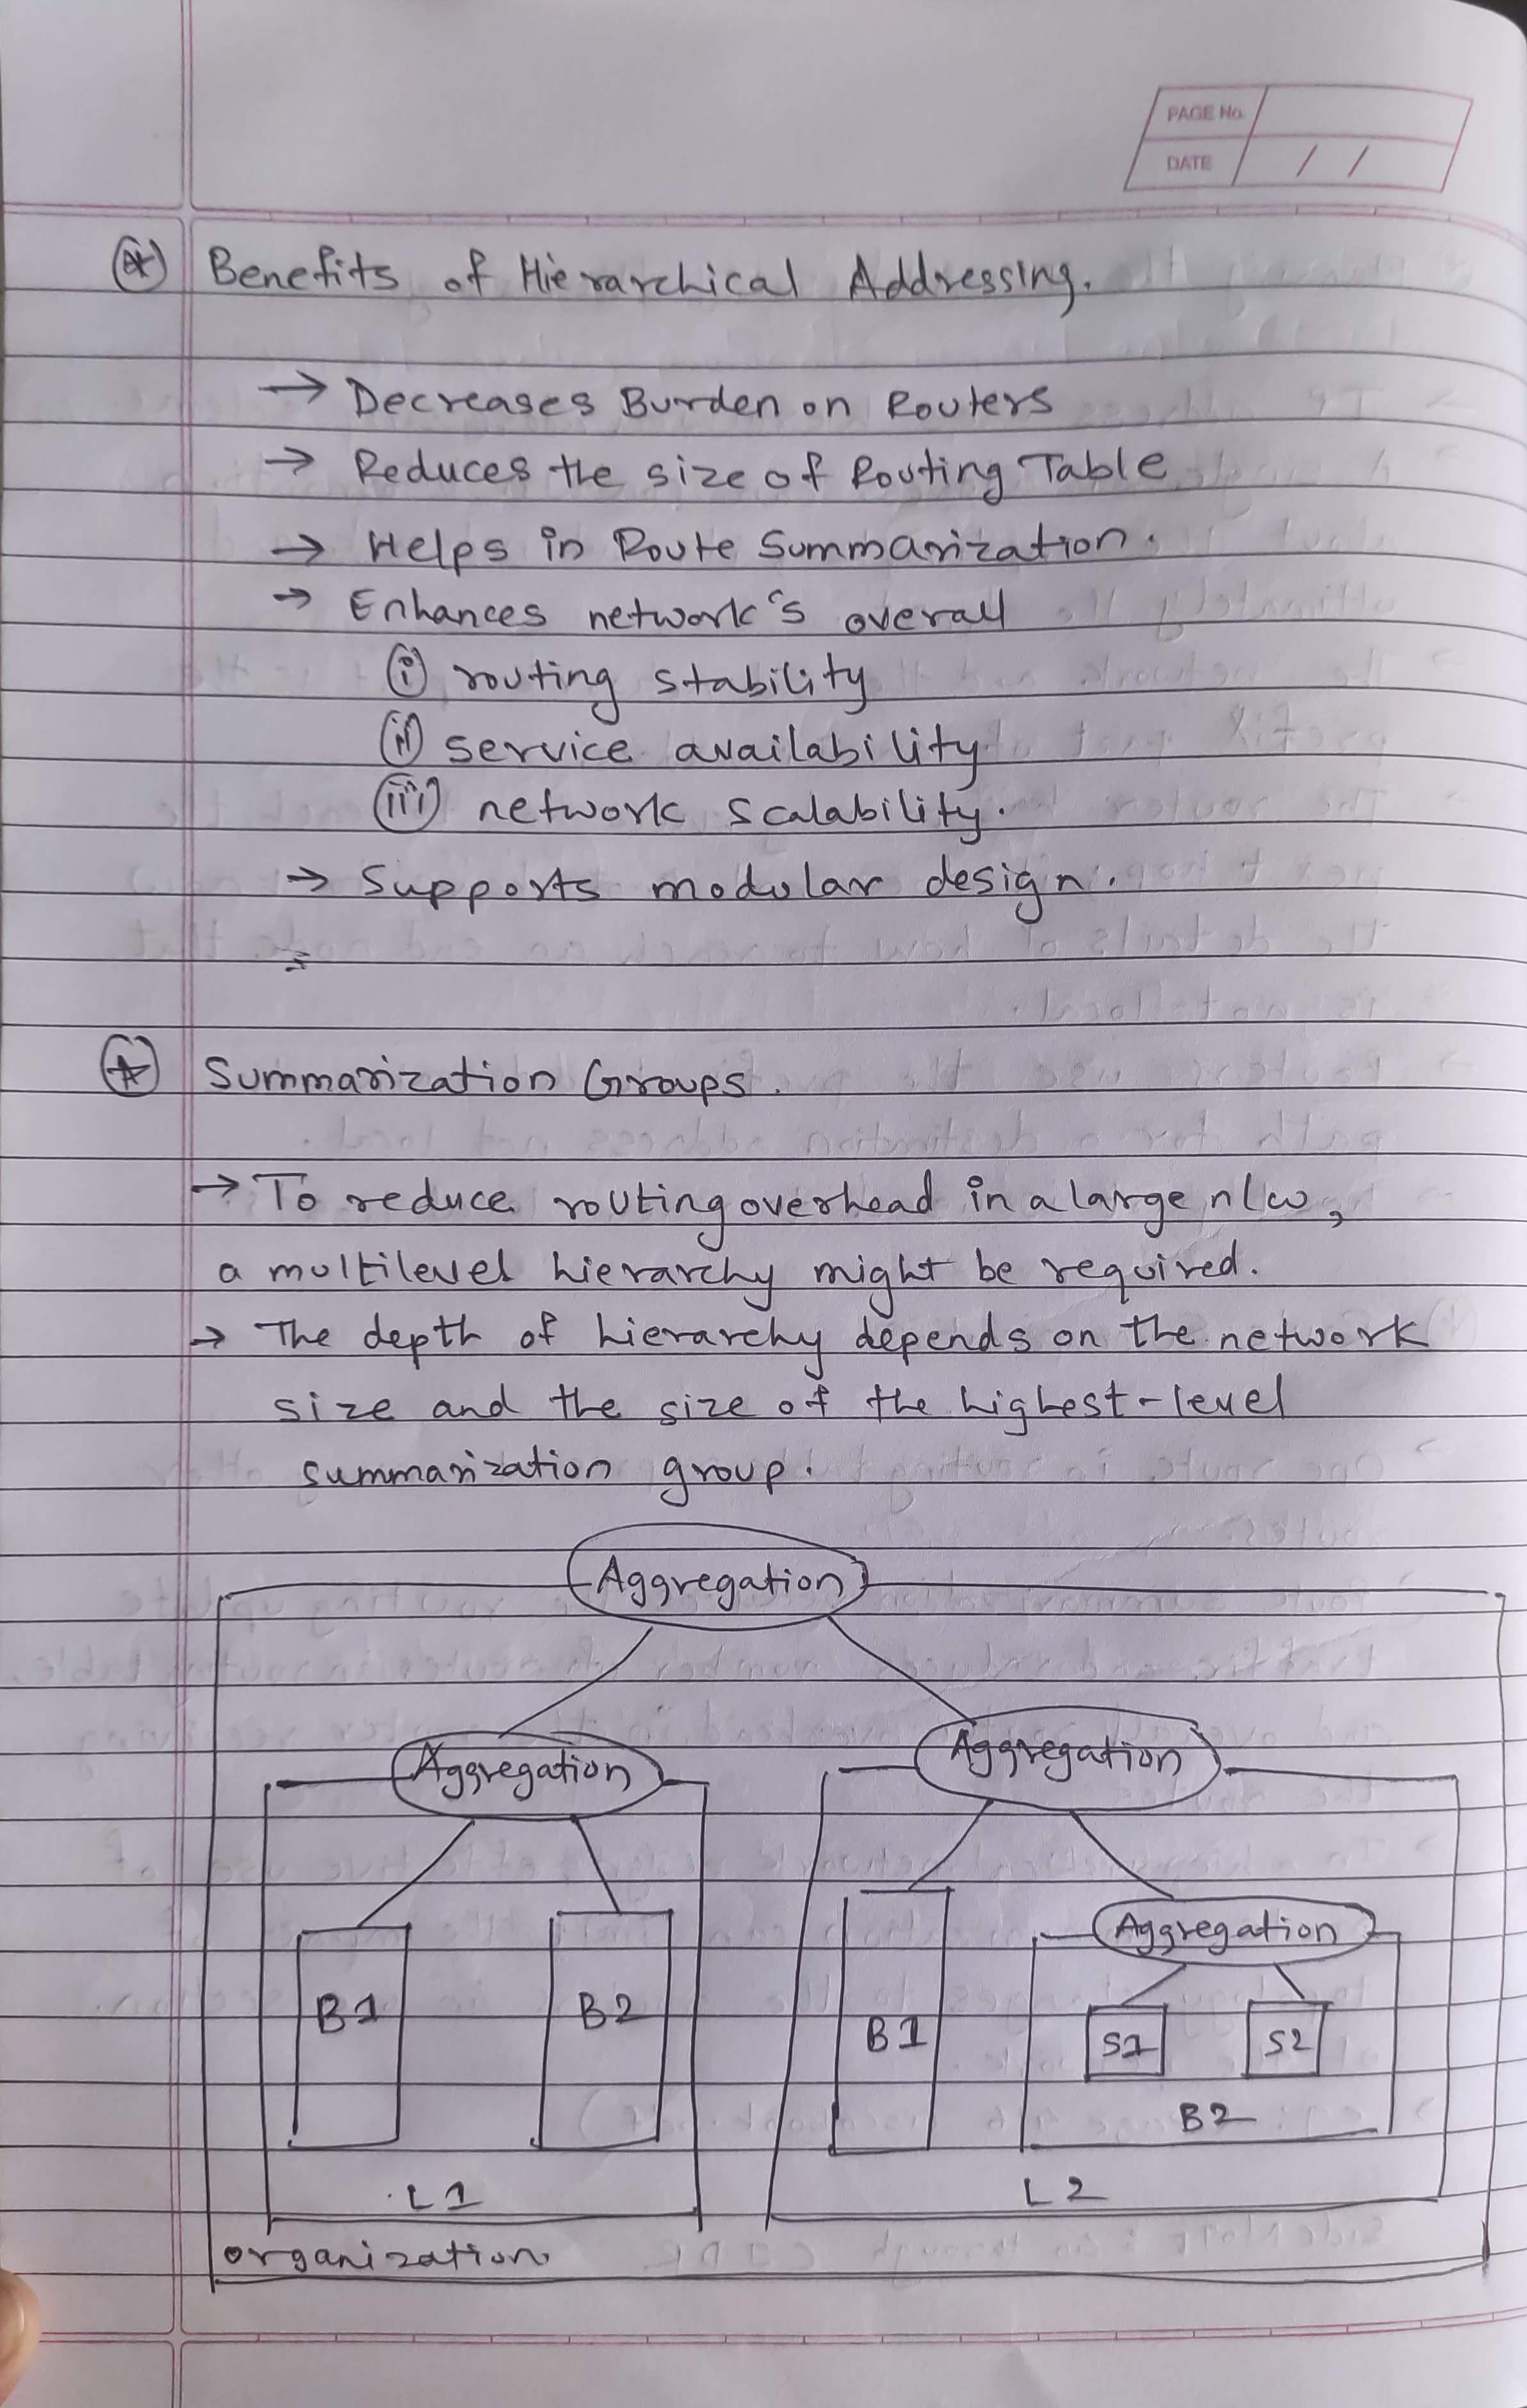 PAGE No.
DATE / /
Benefits of Hierarchical Addressing.
→ Decreases Burden on Routers
→ Reduces the size of Routing Table
→ Helps in Route Summarization.
→ Enhances network's overall
(i) routing stability
(ii) service availability
(iii) network scalability.
→ Supports modular design.
Summarization Groups.
→ To reduce routing overhead in a large n/w,
a multilevel hierarchy might be required.
→ The depth of hierarchy depends on the network
size and the size of the highest-level
summarization group.
Aggregation
Aggregation Aggregation
Aggregation
B1 B2 B1 S1 S2
B2
L1 L2
organization